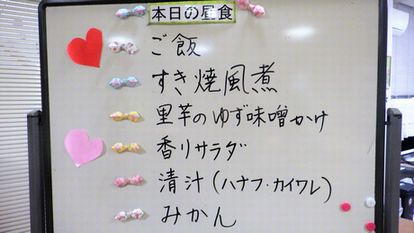 本日の昼食
ご飯
すき焼風煮
里芋のゆず味噌かけ
香りサラダ
清汁(ハナフ・カイワレ)
みかん